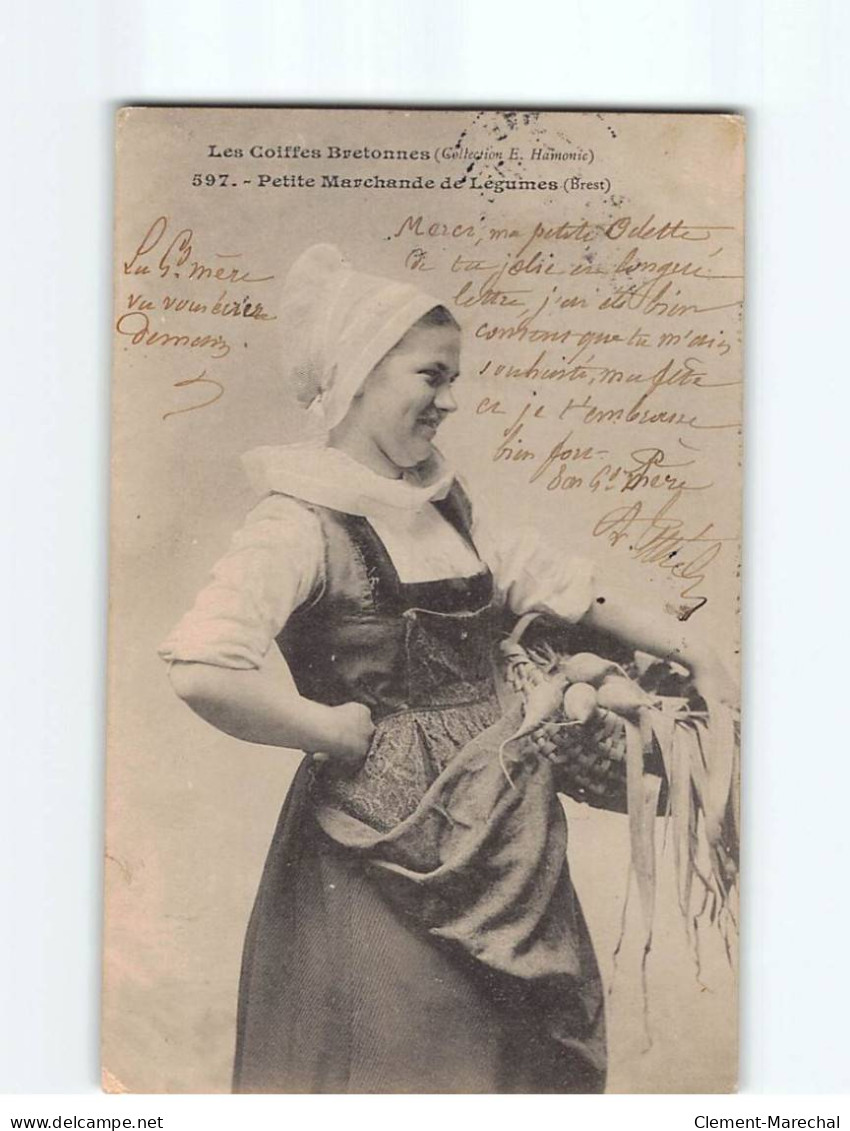 Les Coiffes Bretonnes (Collection E. Hamonic)
597. - Petite Marchande de Légumes (Brest)
La Gd mère
va vous écrire
demain.
Merci, ma petite Odette
de ta jolie et longue
lettre, j'ai été bien
content que tu m'aies
souhaité, ma fête
et je t'embrasse
bien fort-
Ton Gd Père
Clement-Marechal